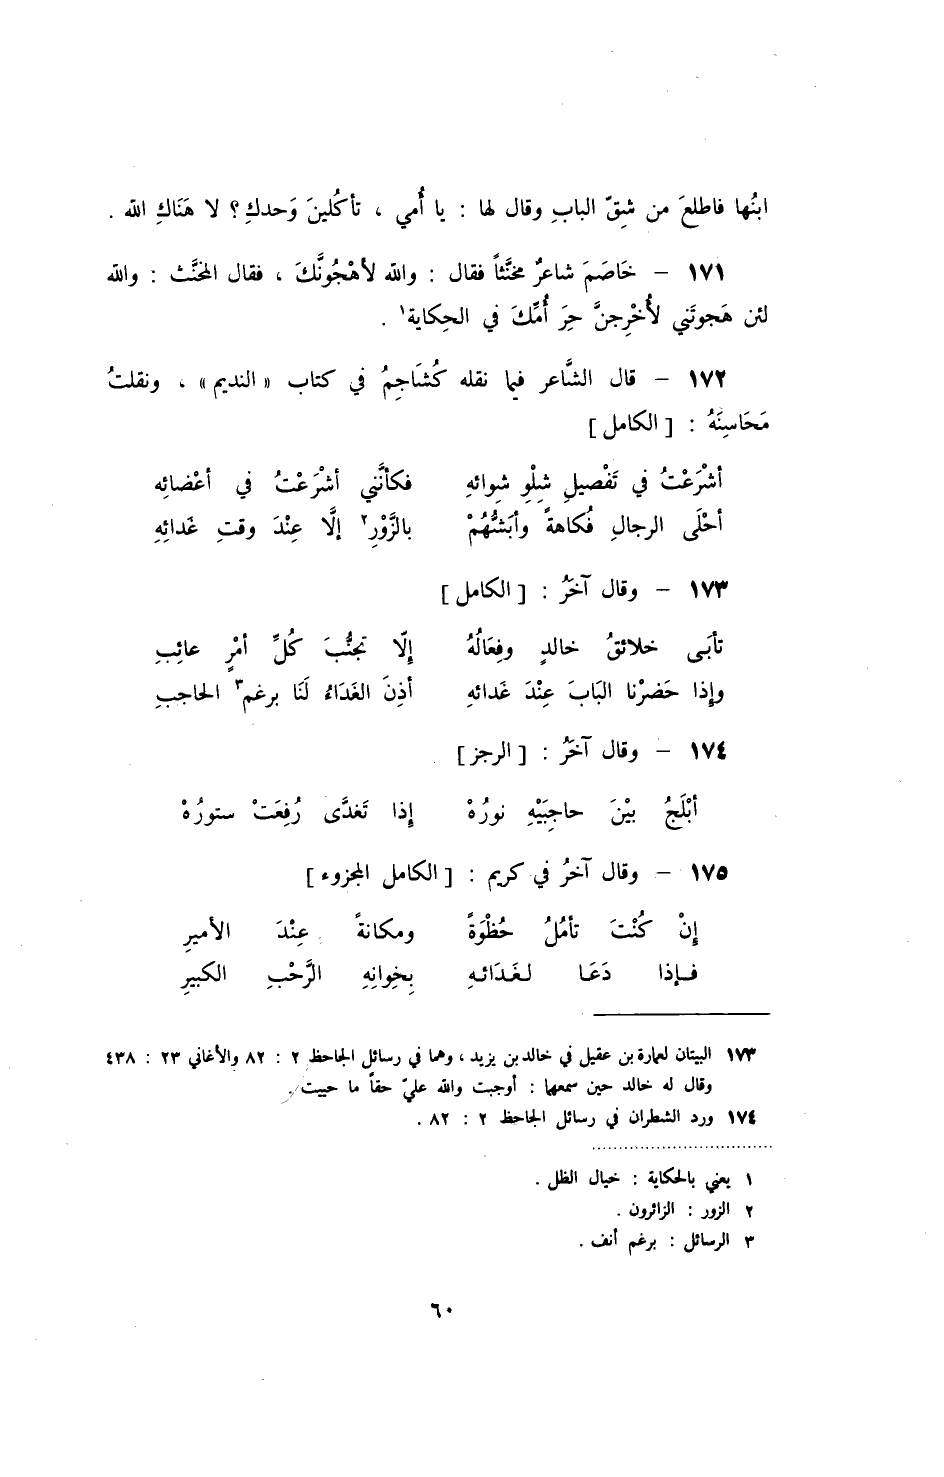 ابنُها فاطلعَ من شِقّ البابِ وقال لها : يا أُمي ، تأكُلينَ وَحدكِ؟ لا هَنَاكِ الله .
١٧١ – خَاصَمَ شاعرٌ مخنَّثاً فقال : والله لأهْجُونَّكَ ، فقال المخنَّث : والله
لئن هَجوتَني لأُخْرِجنَّ حِرَ أُمِّكَ في الحِكاية١ .
١٧٢ – قال الشَّاعر فيما نقله كُشَاجِمُ في كتاب « النديم » ، ونقلتُ
مَحَاسِنَهُ : [ الكامل ]
أشْرَعْتُ في تَفْصيلِ شِلْوِ شِوائهِ فكأنَّني أشْرَعْتُ في أعْضائِه
أحْلَى الرجالِ فُكاهةً وأبَشُّهُمْ بالزَّوْرِ٢ إلَّا عِنْدَ وقتِ غَدائِهِ
١٧٣ – وقال آخَرُ : [ الكامل ]
تأبَى خلائقُ خالدٍ وفِعَالُهُ إلّا تجنُّبَ كُلِّ أمْرٍ عائِبِ
وإذا حَضرْنا البَابَ عِنْدَ غَدائهِ أذِنَ الغَدَاءُ لَنَا برغم٣ الحاجبِ
١٧٤ – وقال آخَرُ : [ الرجز ]
أبْلَجُ بيْنَ حاجِبَيْهِ نورُهْ إذا تَغدَّى رُفِعَتْ ستورُهْ
١٧٥ – وقال آخرُ في كريم : [ الكامل المجزوء ]
إنْ كُنْتَ تأمُلُ حُظْوَةً ومكانةً عِنْدَ الأميرِ
فـإذا دَعَا لـغَدائـهِ بِخِوانِهِ الرَّحْبِ الكبيرِ
١٧٣ البيتان لعمارة بن عقيل في خالد بن يزيد ، وهما في رسائل الجاحظ ٢ : ٨٢ والأغاني ٢٣ : ٤٣٨
وقال له خالد حين سمعها : أوجبت والله عليّ حقاً ما حييت .
١٧٤ ورد الشطران في رسائل الجاحظ ٢ : ٨٢ .
١ يعني بالحكاية : خيال الظل .
٢ الزور : الزائرون .
٣ الرسائل : برغم أنف .
٦٠